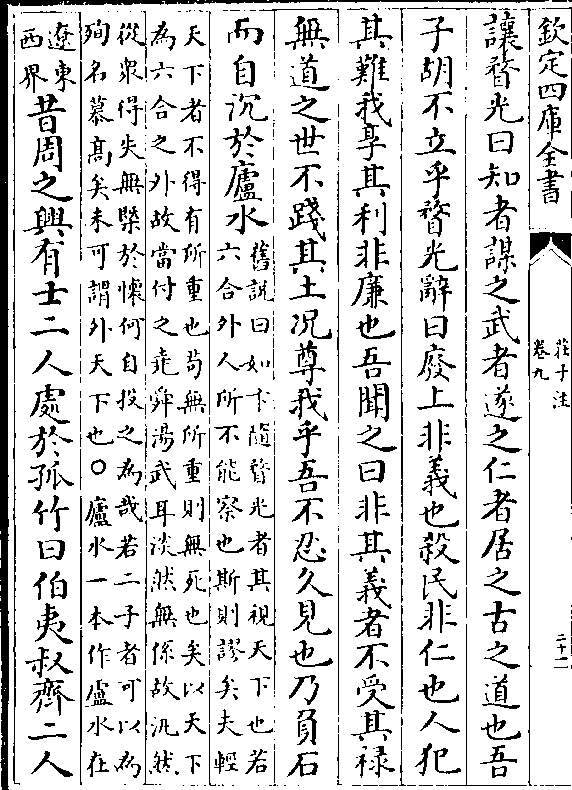 欽定四庫全書
莊子注
卷九
二十一
讓瞀光曰知者謀之武者遂之仁者居之古之道也吾
子胡不立乎瞀光辭曰廢上非義也殺民非仁也人犯
其難我享其利非廉也吾聞之曰非其義者不受其祿
無道之世不踐其土况尊我乎吾不忍久見也乃負石
而自沉於廬水
舊說曰如卞隨瞀光者其視天下也若
六合外人所不能察也斯則謬矣夫輕
天下者不得有所重也茍無所重則無死也矣以天下
為六合之外故當付之堯舜湯武耳淡然無係故汎然
從衆得失無槩於懐何自投之為哉若二子者可以為
殉名慕髙矣未可謂外天下也○廬水一本作盧水在
遼東
西界
昔周之興有士二人處於孤竹曰伯夷叔齊二人